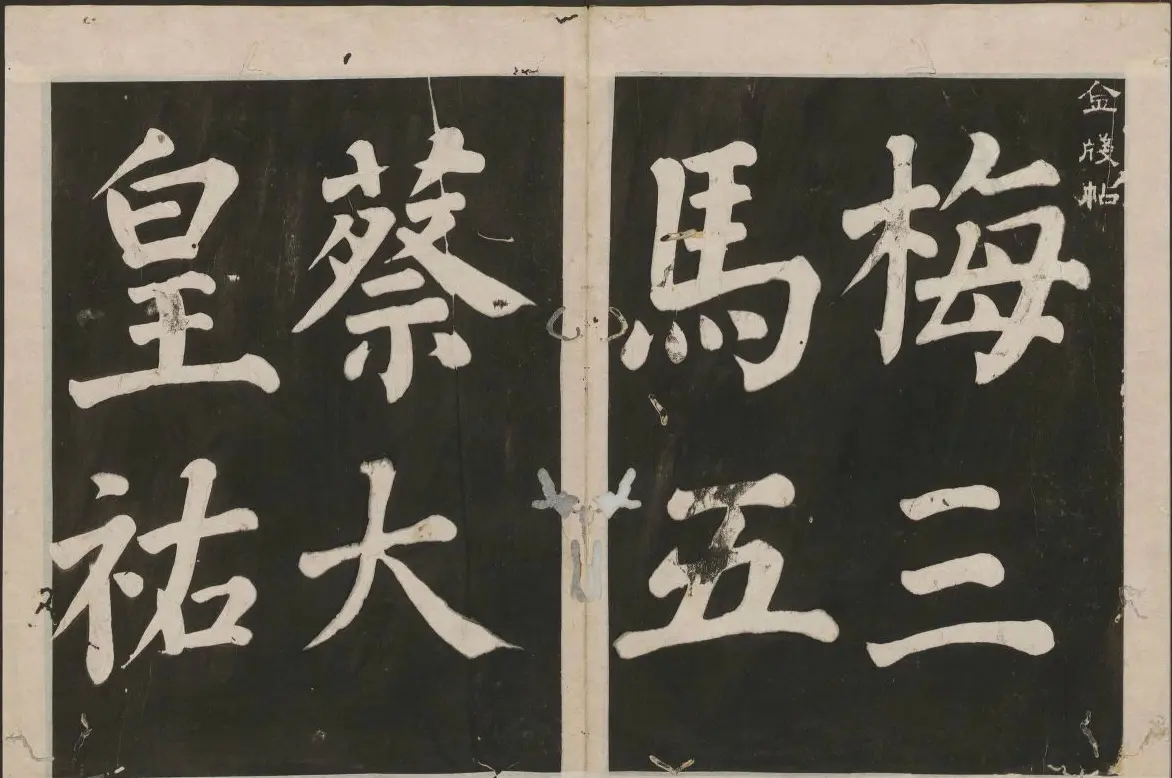 金牋帖
梅三
馬五
蔡大
皇祐